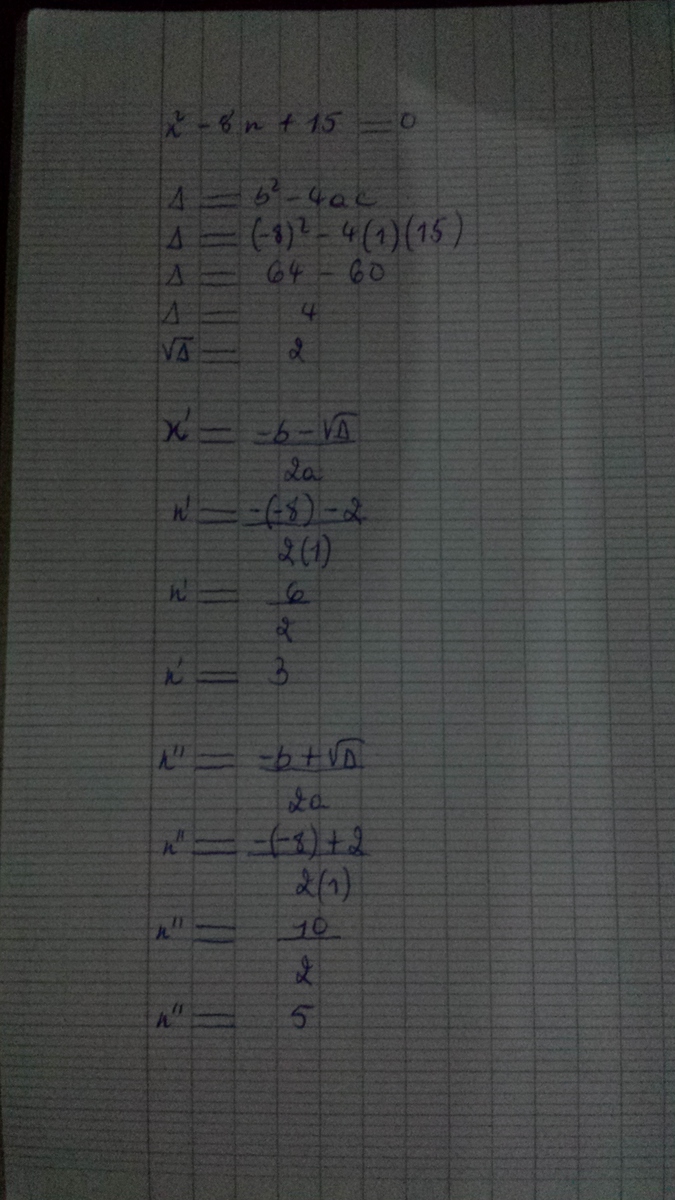 x² - 8x + 15 = 0
Δ = b² - 4ac
Δ = (-8)² - 4(1)(15)
Δ = 64 - 60
Δ = 4
√Δ = 2
x' = -b - √Δ
2a
x' = -(-8) - 2
2(1)
x' = 6
2
x' = 3
x'' = -b + √Δ
2a
x'' = -(-8) + 2
2(1)
x'' = 10
2
x'' = 5